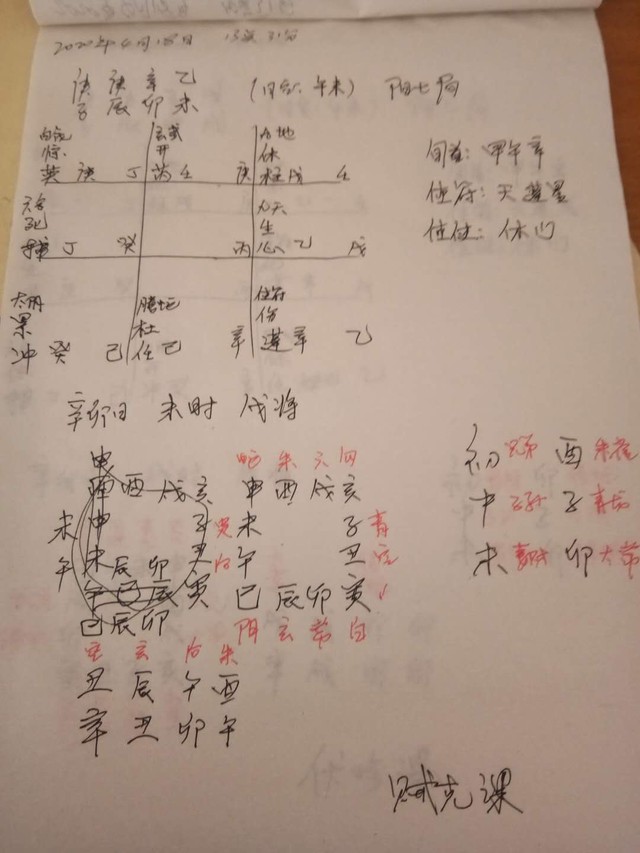 2020年4月18日 13点31分
庚 庚 辛 乙
子 辰 卯 未 (日空: 午未) 阳七局
白虎 玄武 九地
惊 开 休
英 庚 丁 芮 壬 庚 柱 戊 壬
九天
死 生
丁 癸 丙 心 乙 戊
螣蛇 值符
杜 伤
冲 癸 己 任 己 辛 蓬 辛 乙
旬首: 甲午辛
值符: 天蓬星
值使: 休门
辛卯日 未时 戌将
申
酉 戌 亥
未 申 子
午 未 辰 卯 丑
午 巳 辰 寅
巳 辰 卯
朱 六 勾
申 酉 戌 亥
未 子 青
午 丑
巳 辰 卯 寅
阴 玄 常 白
初 兄弟 酉 朱雀
中 子孙 子 青龙
末 妻财 卯 太常
玄 朱
丑 辰 午 酉
辛 丑 卯 午
贼克课